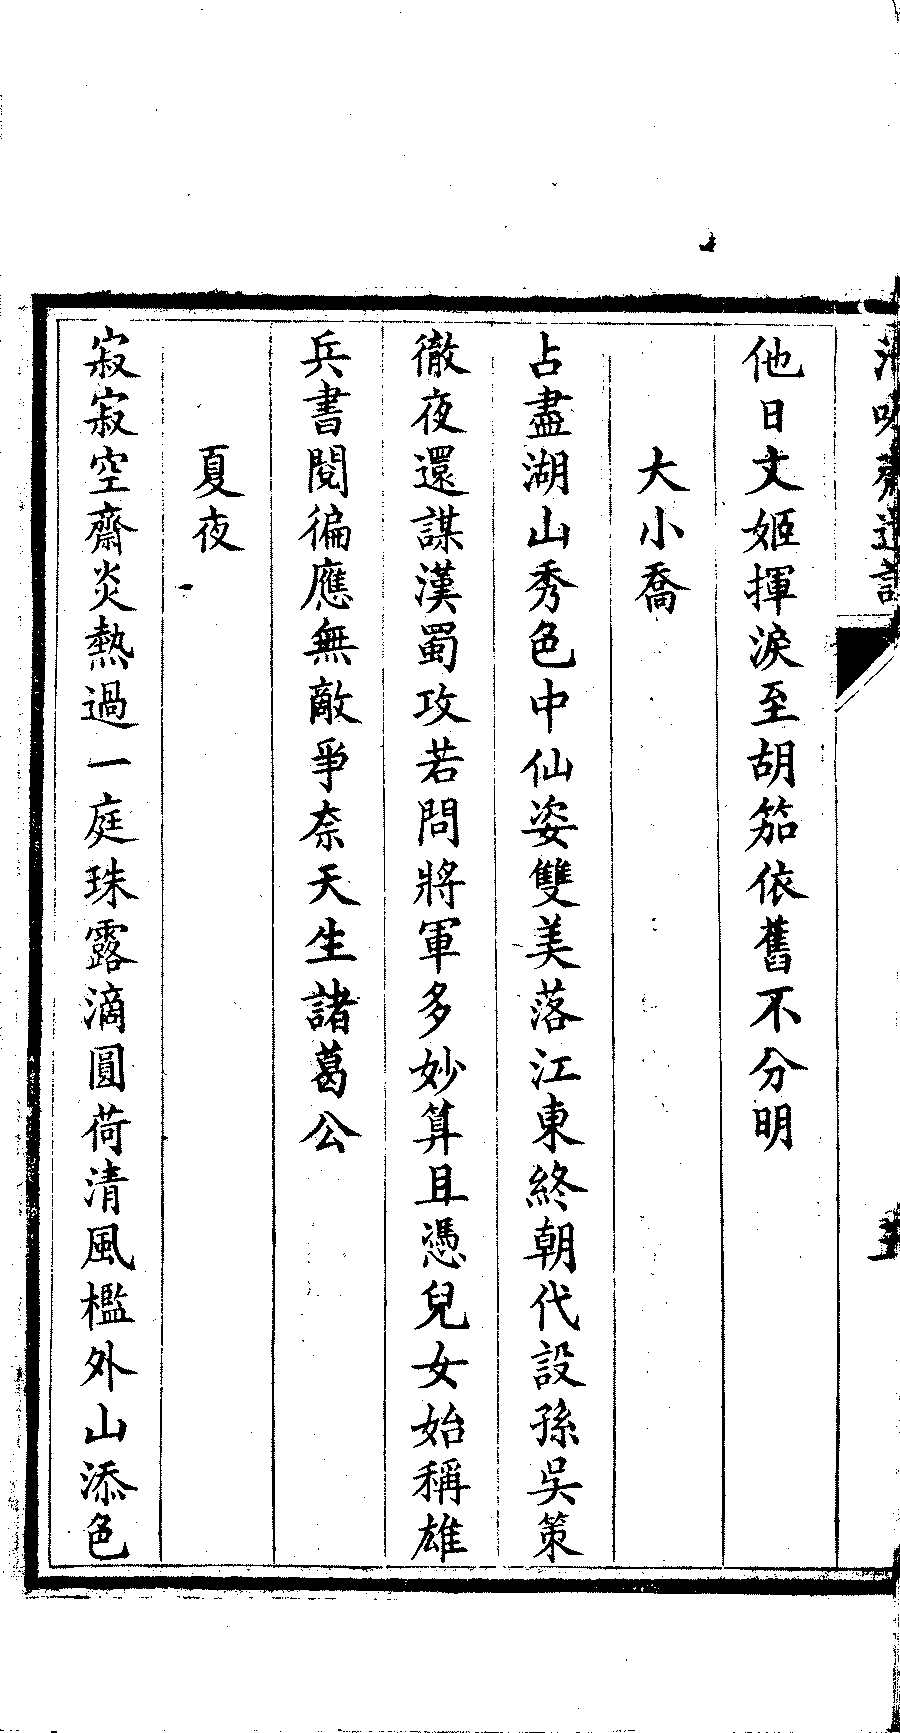 他日文姬揮淚至胡笳依舊不分明
大小喬
占盡湖山秀色中仙姿雙美落江東終朝代設孫吳策
徹夜還謀漢蜀攻若問將軍多妙算且憑兒女始稱雄
兵書閱徧應無敵爭奈天生諸葛公
夏夜
寂寂空齋炎熱過一庭珠露滴圓荷清風檻外山添色